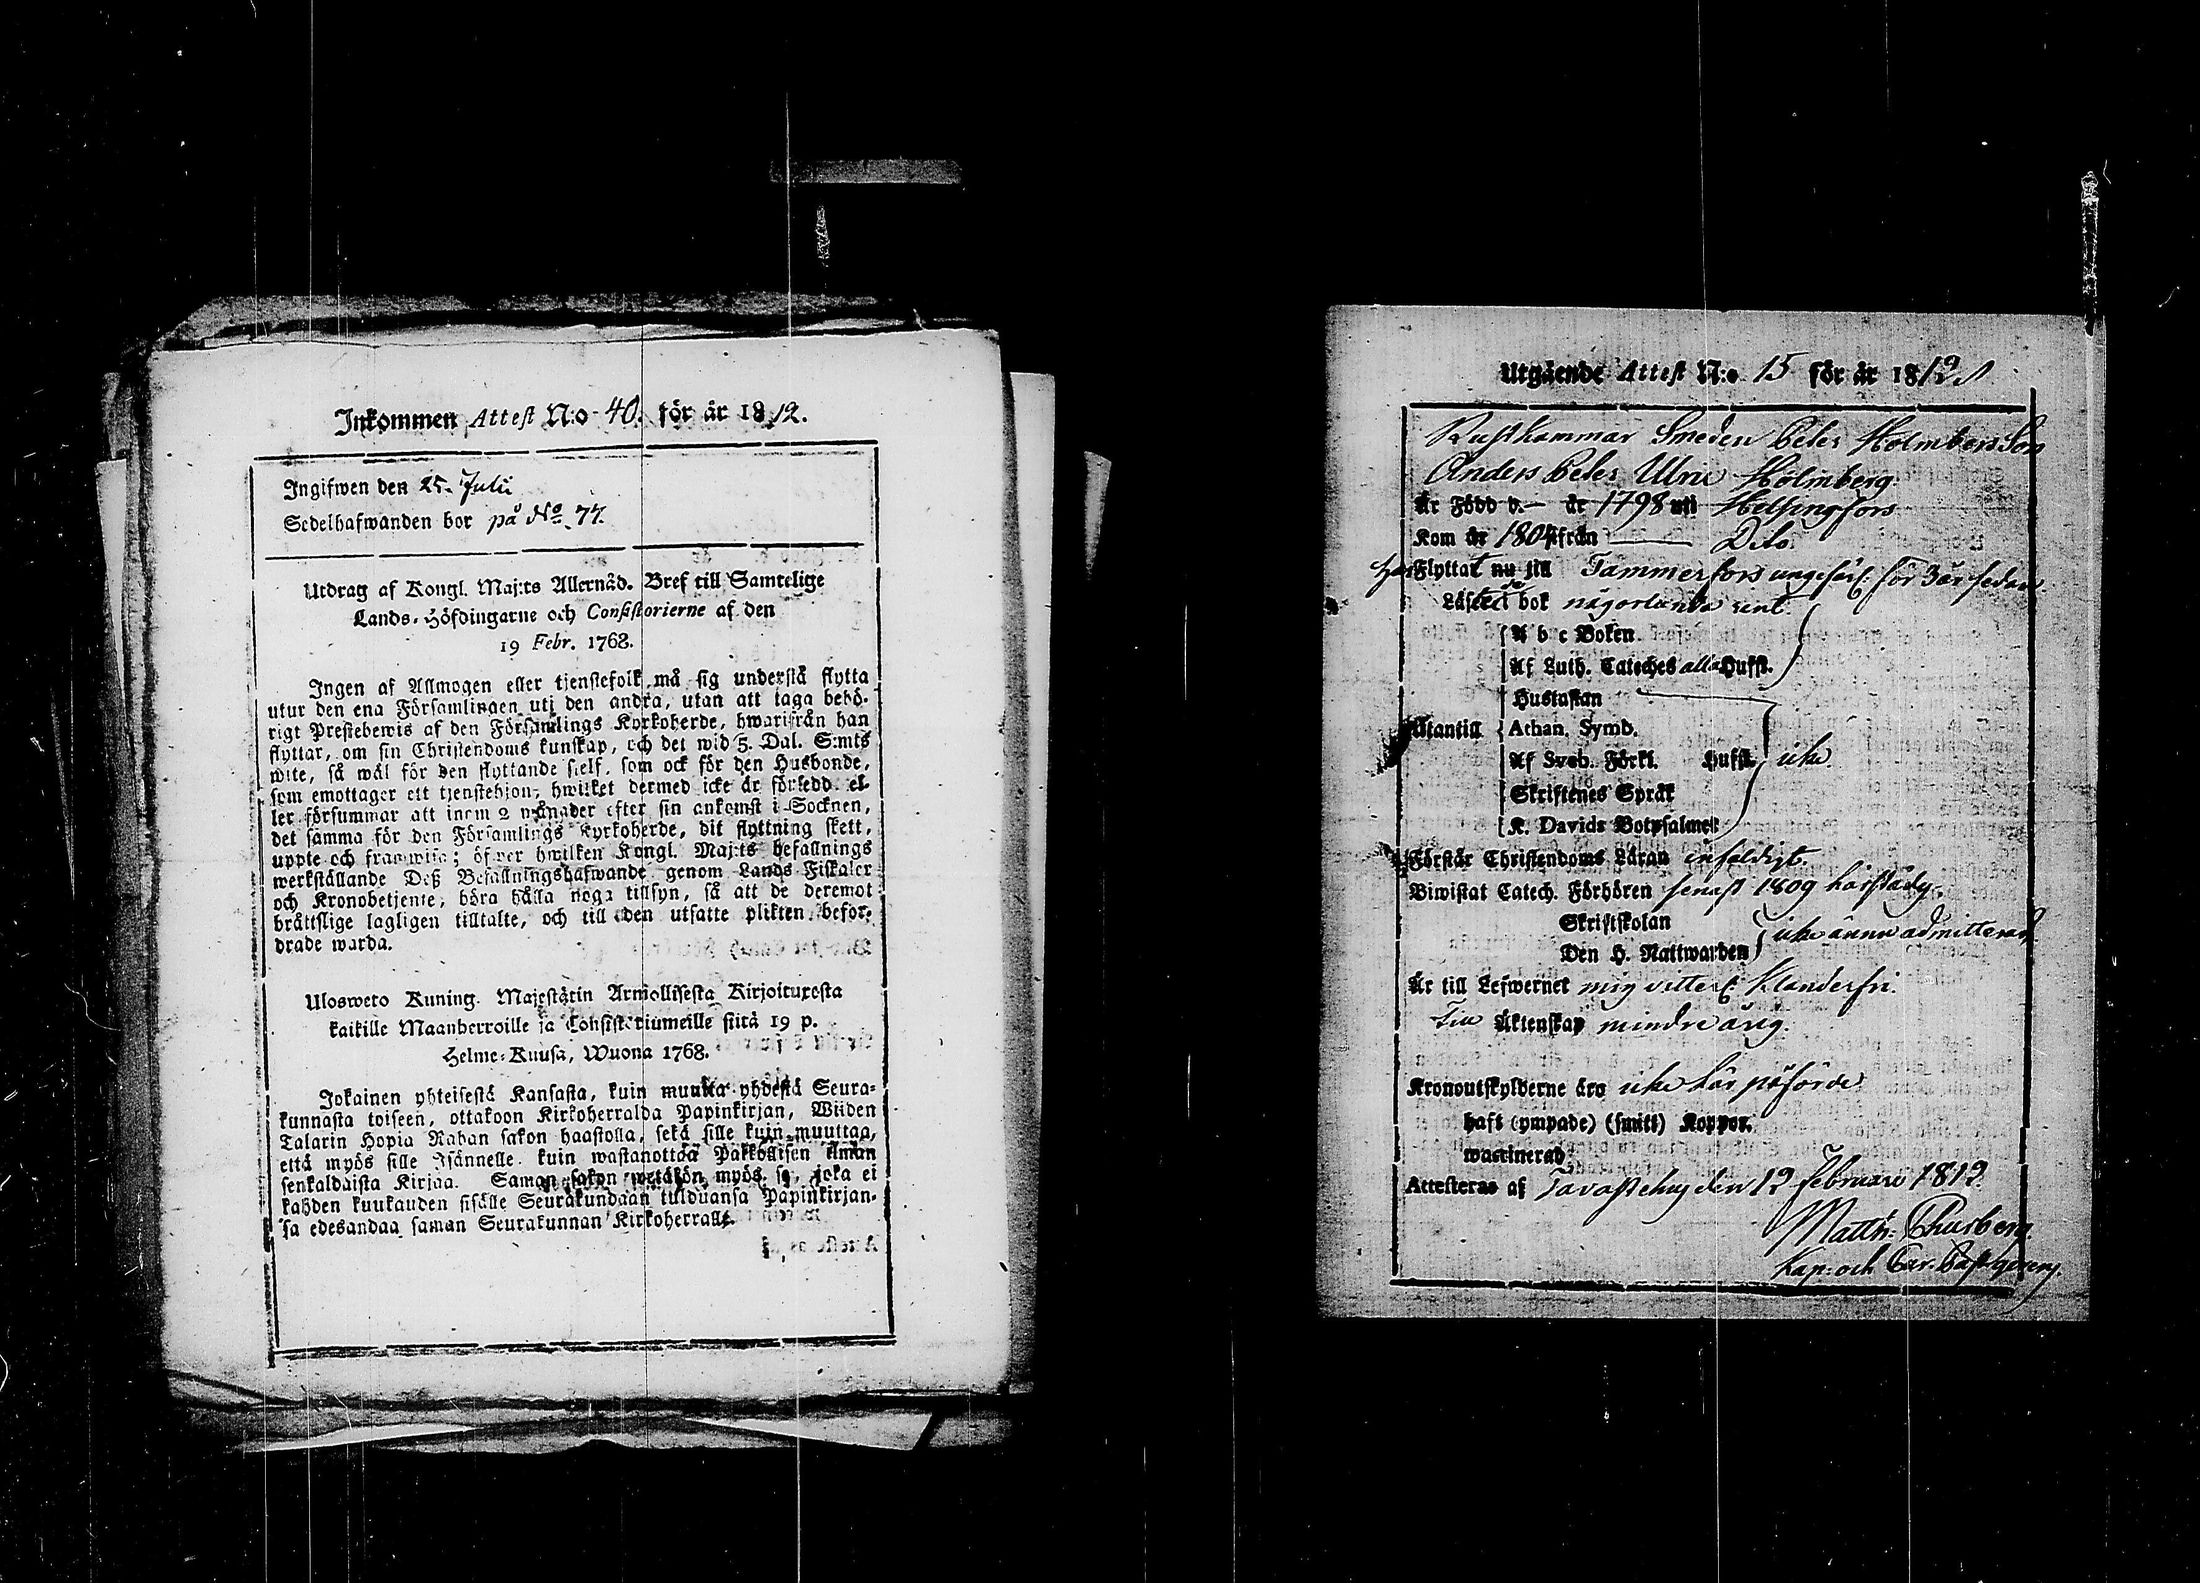 Inkommen Attest N:o 40. för år 1812.
Ingifwen den 25. Julii
Sedelhafwanden bor på No. 77.
Utdrag af Kongl. Maj:ts Allernåd. Bref till Samtelige
Lands-Höfdingarne och Consistorierne af den
19 Febr. 1768.
Ingen af Allmogen eller tjenstefolk må sig understå flytta
utur den ena Församlingen uti den andra, utan att taga behö-
rigt Prestebewis af den Församlings Kyrkoherde, hwarifrån han
flyttar, om sin Christendoms kunskap, och det wid 5. Dal. S:mts
wite, så wäl för den flyttande sielf, som ock för den Husbonde,
som emottager ett tjenstehjon, hwilket dermed icke är försedd el-
ler försummar att inom 2 månader efter sin ankomst i Socknen,
det samma för den Församlings Kyrkoherde, dit flyttning skett,
uppte och framwisa; öfwer hwilken Kongl. Maj:ts befallnings
werkställande Deß Befallningshafwande genom Lands-Fiskaler
och Kronobetjente, böra hålla noga tillsyn, så att de deremot
bråttslige lagligen tilltalte, och till den utsatte plikten befor-
drade warda.
Ulosweto Kuning. Majestätin Armollisesta Kirjoituxesta
kaikille Maanherroille ja Consistoriumeille siitä 19 p.
Helme-Kuusa, Wuona 1768.
Jokainen yhteisestä Kansasta, kuin muutta yhdestä Seura-
kunnasta toiseen, ottakoon Kirkoherralda Papinkirjan, Wiiden
Talarin Hopia Rahan sakon haastolla, sekä sille kuin muuttaa,
että myös sille Isännelle, kuin wastanottaa Palkollisen ilman
senkaldaista Kirjaa. Saman sakon wetäkön myös se, joka ei
kahden kuukauden sisälle Seurakundaan tulduansa Papinkirjan-
sa edesandaa saman Seurakunnan Kirkoherralle.
Utgående Attest N:o 15 för år 1812
Rustkammar Smeden Peter Holmbergs Son
Anders Peter Ulric Holmberg
Är Född d. — år 1798 uti Helsingfors
Kom år 1804 ifrån — Dito
Har Flyttat nu till Tammerfors ungefärl: för 3 år sedan
Läste i bok någorlunda rent.
A b c Boken
Af Luth. Cateches alla Hufst.
Hustaflan
Utantill Athan. Symb.
Af Sveb. Förkl. Hufst. icke
Skriftenes Språk
K. Davids Botpsalmer
Förstår Christendoms Läran enfaldigt.
Biwistat Catech. Förhören senast 1809 härstädes
Skriftskolan
Den H. Nattwarden icke ännu admitterad
Är till Lefwernet mig vitterl. Klanderfri.
Till Äktenskap mindre årig.
Kronoutskylderne äro icke här påförde
haft (ympade) (smitt) Koppor.
waccinerad
Attesteras af Tavastehus den 12 Februari 1812.
Matth: Thurberg.
Kap: och